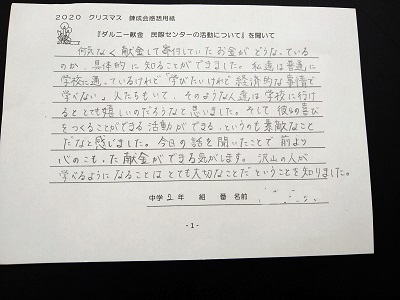 2020 クリスマス 錬成会感想用紙
『ダルニー献金 民際センターの活動について』を聞いて
何気なく献金して寄付していたお金が どうなっている
のか、具体的に知ることができました。私達は普通に
学校に通っているけれど「学びたいけれど経済的な事情で
学べない」人たちもいて、そのような人達は学校に行け
るととても嬉しいのだろうなと思いました。そして彼らの喜び
をつくることができる活動ができる、というのも素敵なこと
だなと感じました。今日の話を聞いたことで前より
心のこもった献金ができる気がします。沢山の人が
学べるようになることはとても大切なことだということを知りました。
中学 年 組 番 名前
-1-